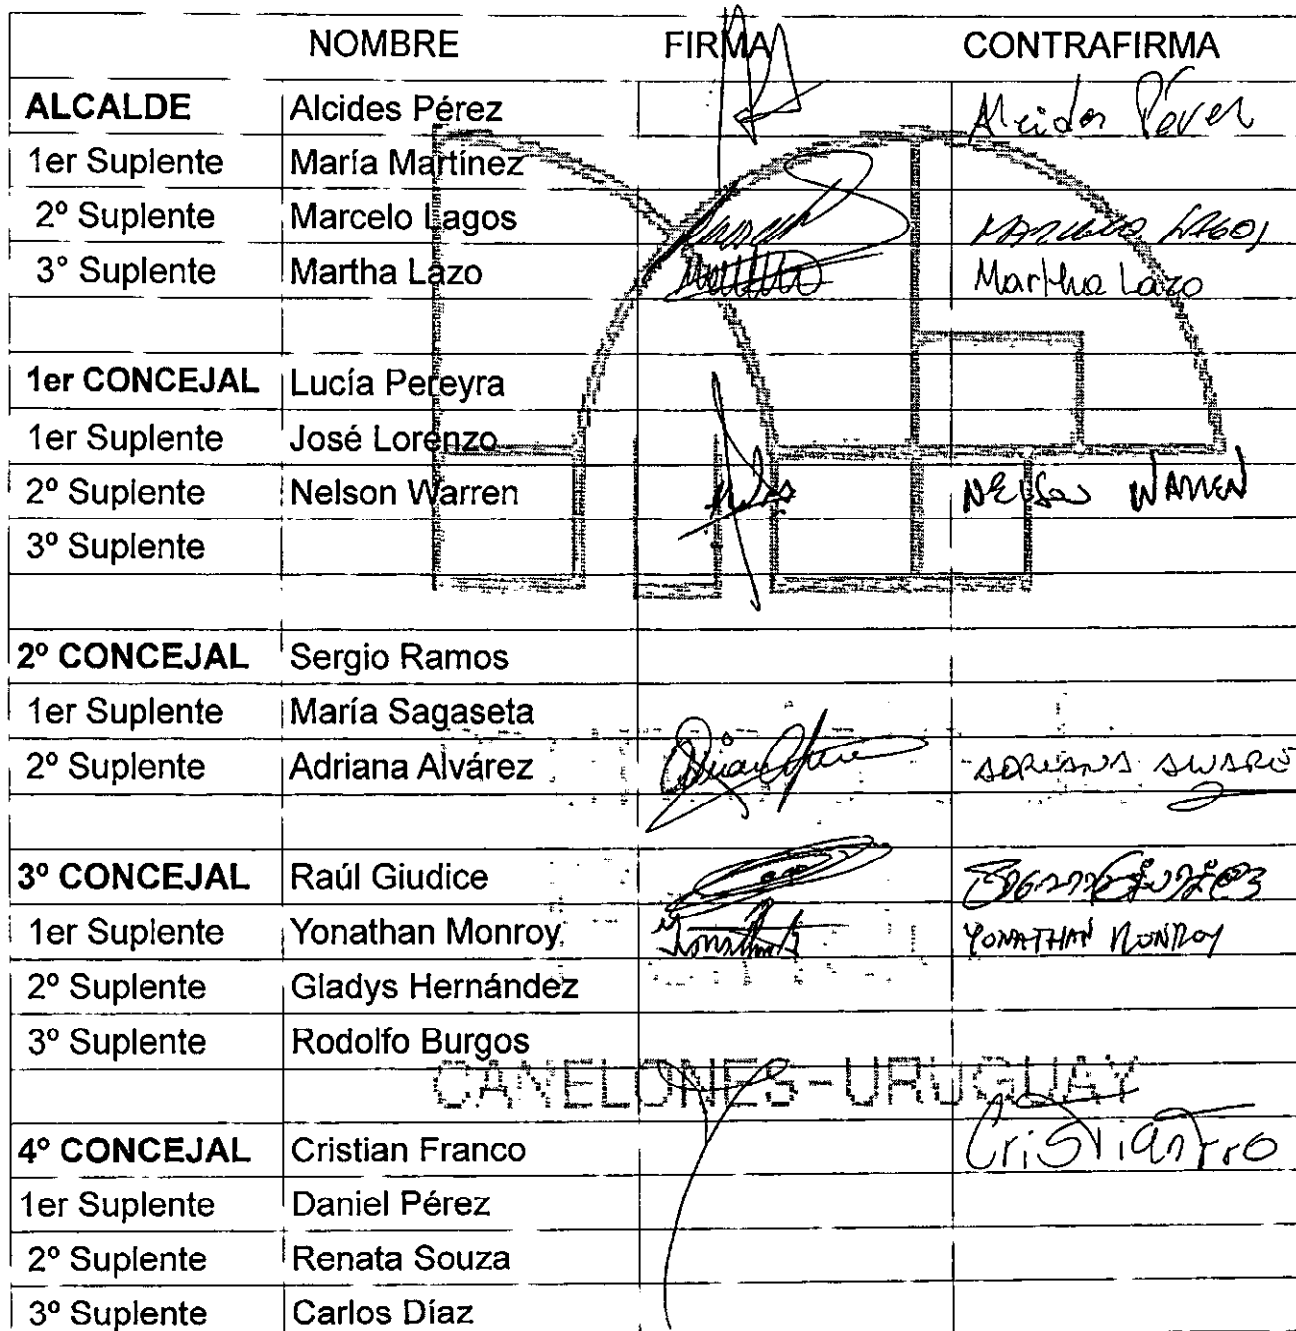 NOMBRE FIRMA CONTRAFIRMA
ALCALDE Alcides Pérez Alcides Pérez
1er Suplente María Martínez
2º Suplente Marcelo Lagos MARCELO LAGOS
3° Suplente Martha Lazo Martha Lazo
1er CONCEJAL Lucía Pereyra
1er Suplente José Lorenzo
2º Suplente Nelson Warren NELSON WARREN
3º Suplente
2º CONCEJAL Sergio Ramos
1er Suplente María Sagaseta
2º Suplente Adriana Alvárez ADRIANA ALVARE
3º CONCEJAL Raúl Giudice
1er Suplente Yonathan Monroy YONATHAN MONROY
2º Suplente Gladys Hernández
3º Suplente Rodolfo Burgos
CANELONES-URUGUAY
4º CONCEJAL Cristian Franco Cristian Fro
1er Suplente Daniel Pérez
2º Suplente Renata Souza
3º Suplente Carlos Díaz